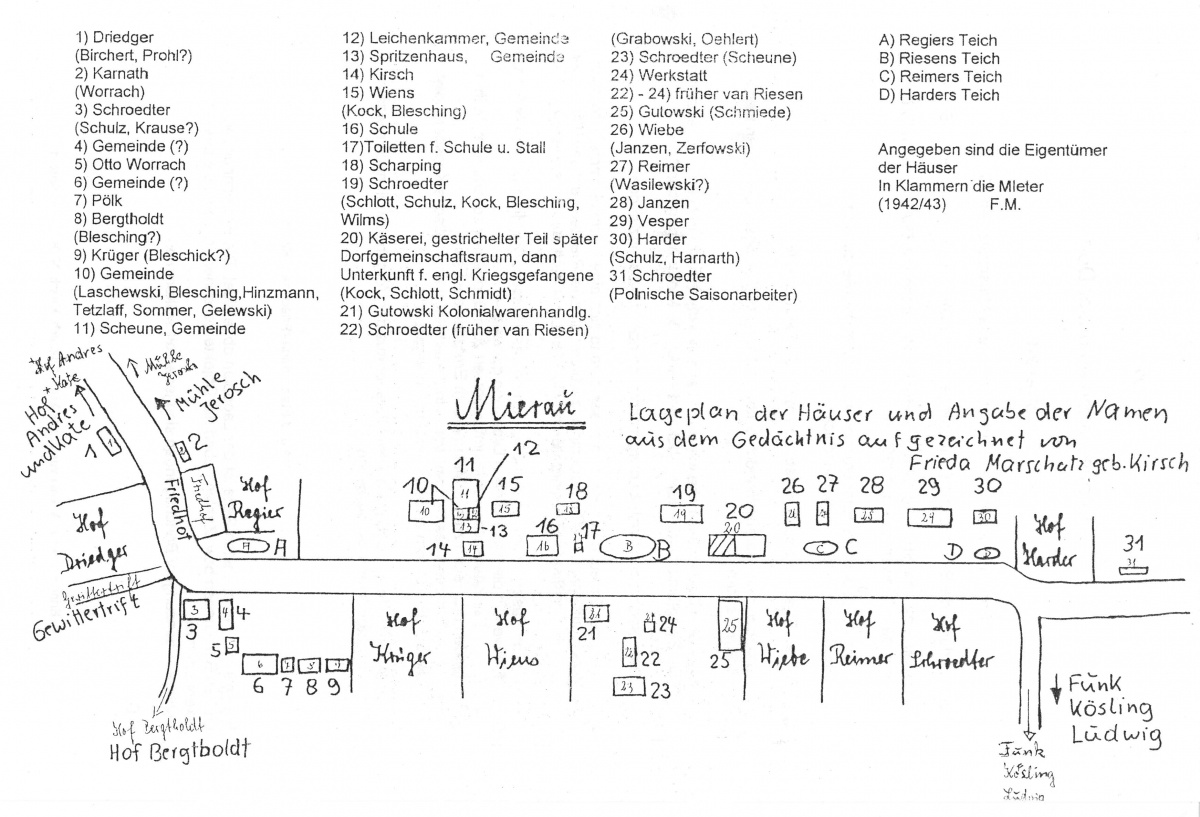 1) Driedger
(Birchert, Prohl?)
2) Karnath
(Worrach)
3) Schroedter
(Schulz, Krause?)
4) Gemeinde (?)
5) Otto Worrach
6) Gemeinde (?)
7) Pölk
8) Bergtholdt
(Blesching?)
9) Krüger (Bleschick?)
10) Gemeinde
(Laschewski, Blesching,Hinzmann,
Tetzlaff, Sommer, Gelewski)
11) Scheune, Gemeinde
12) Leichenkammer, Gemeinde
13) Spritzenhaus, Gemeinde
14) Kirsch
15) Wiens
(Kock, Blesching)
16) Schule
17)Toiletten f. Schule u. Stall
18) Scharping
19) Schroedter
(Schlott, Schulz, Kock, Blesching,
Wilms)
20) Käserei, gestrichelter Teil später
Dorfgemeinschaftsraum, dann
Unterkunft f. engl. Kriegsgefangene
(Kock, Schlott, Schmidt)
21) Gutowski Kolonialwarenhandlg.
22) Schroedter (früher van Riesen)
(Grabowski, Oehlert)
23) Schroedter (Scheune)
24) Werkstatt
22) - 24) früher van Riesen
25) Gutowski (Schmiede)
26) Wiebe
(Janzen, Zerfowski)
27) Reimer
(Wasilewski?)
28) Janzen
29) Vesper
30) Harder
(Schulz, Harnarth)
31 Schroedter
(Polnische Saisonarbeiter)
A) Regiers Teich
B) Riesens Teich
C) Reimers Teich
D) Harders Teich
Angegeben sind die Eigentümer
der Häuser
In Klammern die MIeter
(1942/43) F.M.
Hof Andres
+ Kate
Mühle
Jerosch
Hof
Andres
und Kate
Mühle
Jerosch
Mieraŭ
Lageplan der Häuser und Angabe der Namen
aus dem Gedächtnis aufgezeichnet von
Frieda Marschatz geb. Kirsch
1
2
Friedhof
Friedhof
Hof
Regier
A A
10 10
11 11
12
13 13
14 14
15 15
16 16
17
18 18
19 19
20 20
B B
26
27
28 28
29 29
30 30
C C
D D
Hof
Harder
31
31
Hof
Driedger
Gewittertrift
Gewittertrift
3
3
4 4
5 5
6
7
8
9
6 7 8 9
Hof
Krüger
Hof
Wiens
21
21
24
22
22
23 23
25
25
Hof
Wiebe
Hof
Reimer
Hof
Schroedter
Hof Bergtholdt
Hof Bergtboldt
Fŭnk
Kösling
Lŭdwig
Fŭnk
Kösling
Lŭdwig